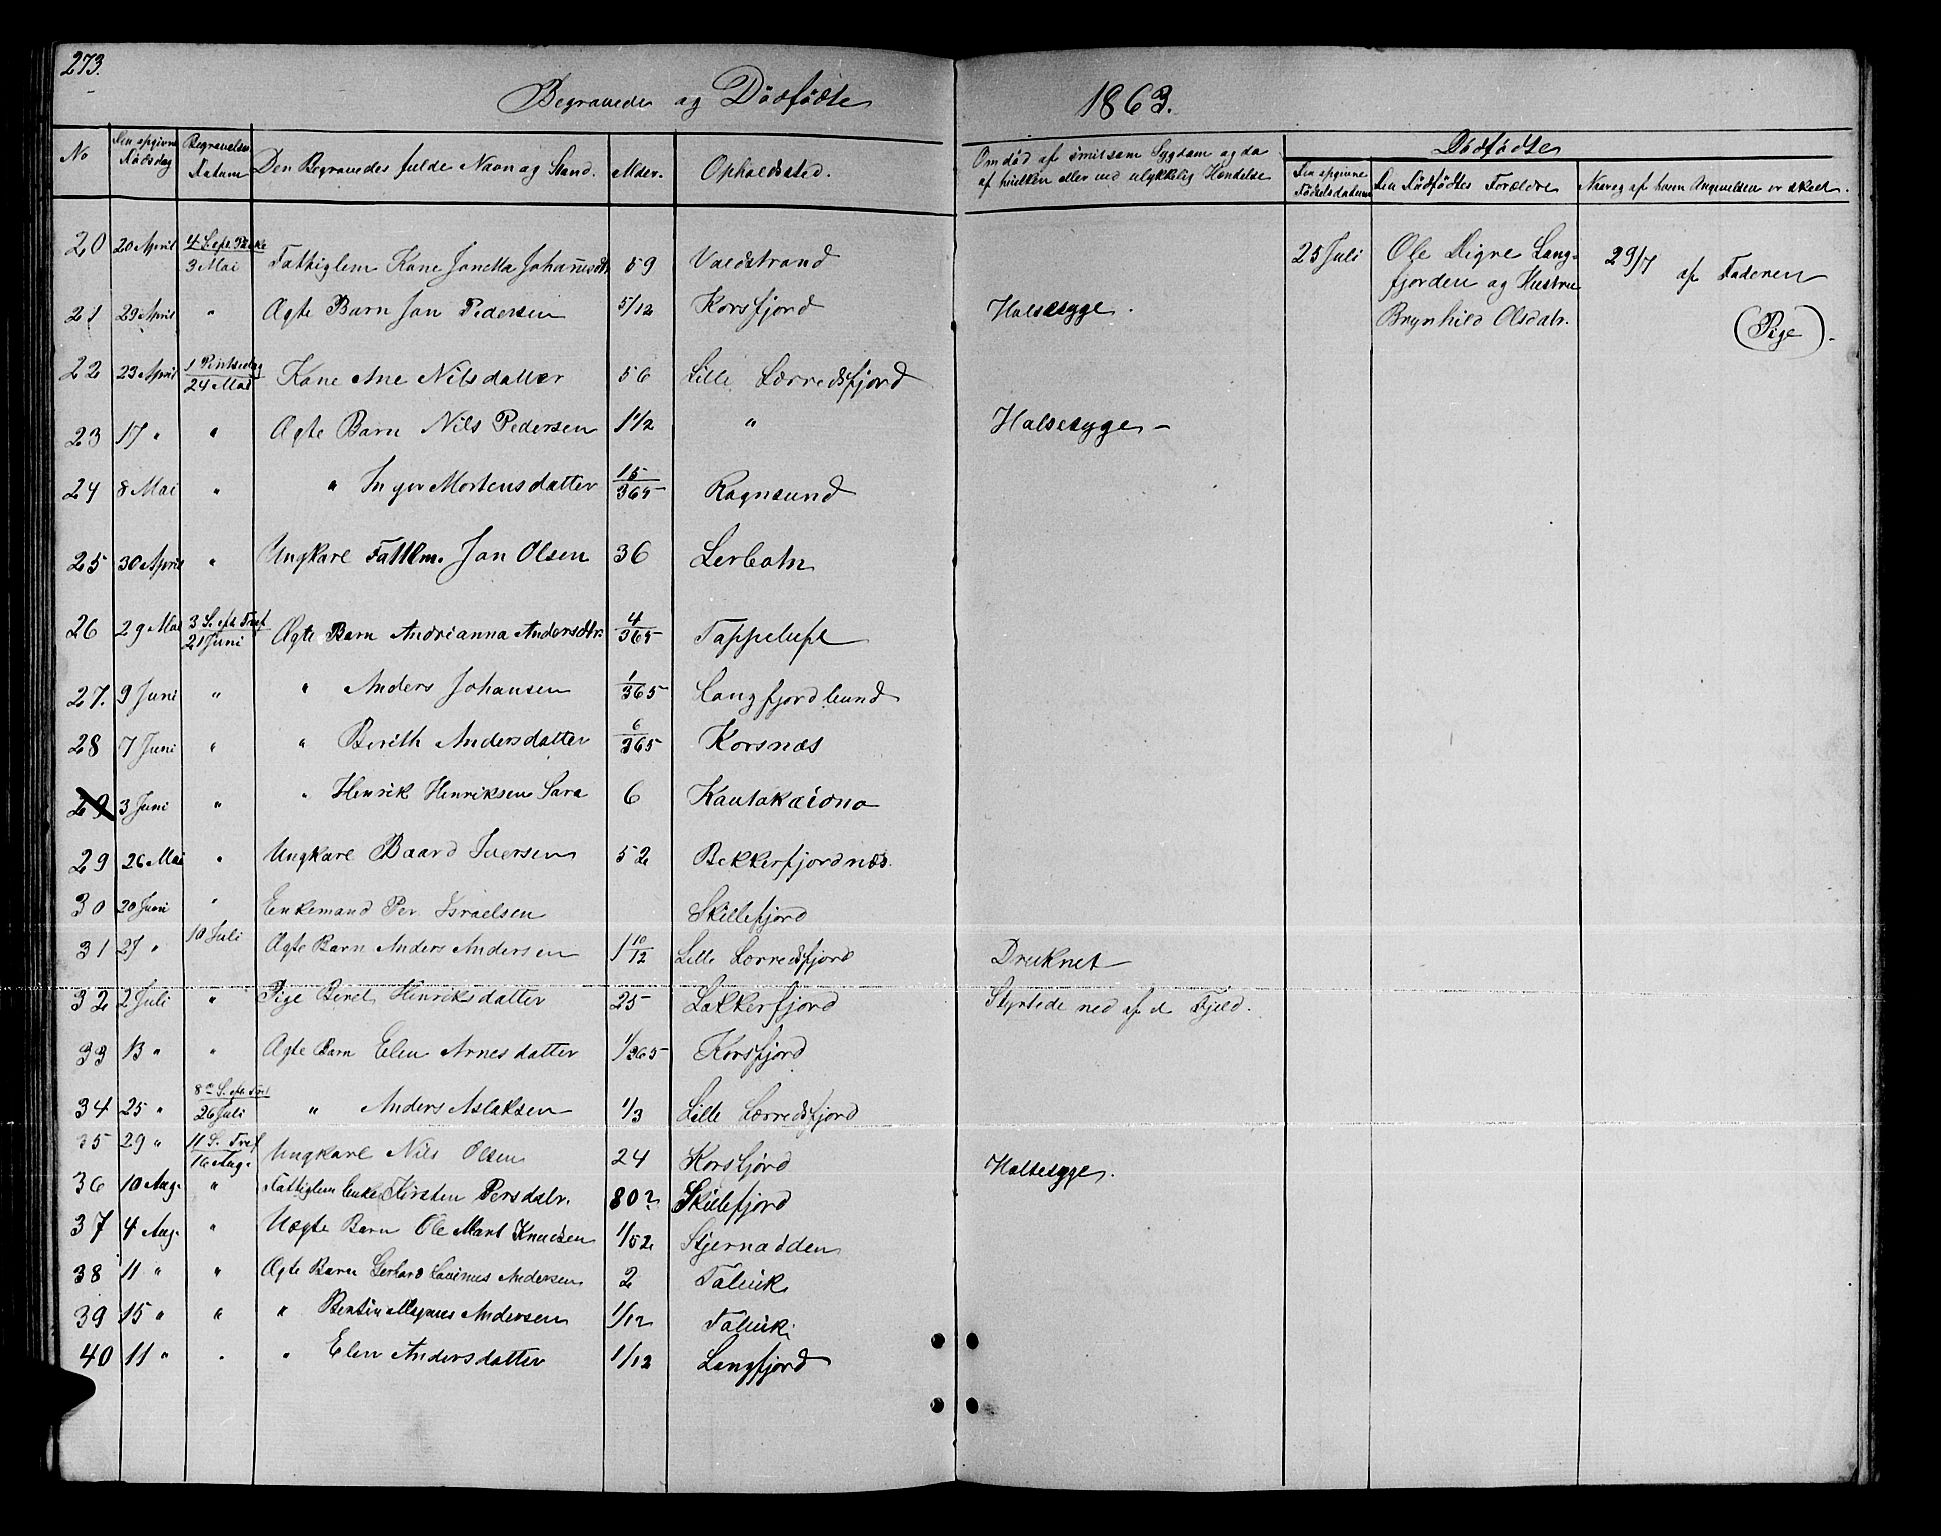 273.
Begravede og Dödfödte 1863.
No
Den opgivne Dödsdag
Begravelses Datum
Den Begravedes fulde Navn og Stand.
Alder.
Opholdssted.
Om död af smitsom Sygdom og da
af hvilken eller ved ulykkelig Hendelse
Dödfödte
Den opgivne Födselsdatum
Den Dödfödtes Forældre
Naar og af hvem Angivelsen er skeet.
20 20 April 4 S. eft. Paske 3 Mai Fattiglem Kone Janetta Johannesdtr 59 Valdstrand
25 Juli Ole Digre Lang-
fjorden og Hustru
Brynhild Olsdatr.
29/7 af Faderen
(Pige).
21 29 April " Ægte Barn Jon Pedersen 5/12 Korsfjord Halsesyge.
22 29 April 1 Pintsedag 24 Mai Kone Ane Nilsdatter 56 Lille Lerredsfjord
23 17 " " Ægte Barn Nils Pedersen 1 1/2 " Halsesyge -
24 8 Mai " " Inger Mortensdatter 15/365 Rognsund
25 30 April " Ungkarl Fattlm. Jon Olsen 36 Lerbotn
26 29 Mai 3 S. eft Tref 21 Juni Ægte Barn Andrianna Andersdtr. 4/365 Tappeluft
27. 9 Juni " " Anders Johansen 1/365 Langfjordbund
28 7 Juni " " Berith Andersdatter 6/365 Korsnæs
29 3 Juni " " Henrik Henriksen Sara 6 Kautokæiono
29 26 Mai " Ungkarl Baard Iversen 52 Bekkerfjordnæs.
30 20 Juni " Enkemand Per Israelsen Skillefjord
31 27 " 10 Juli Ægte Barn Anders Andersen 1 10/12 Lille Lerredsfjord Druknet
32 2 Juli " Pige Beret Henriksdatter 25 Lakkerfjord Styrtede ned af et Fjeld.
33 13 " " Ægte Barn Elen Arnesdatter 1/365 Korsfjord
34 25 " 8de S. eft. Tref 26 Juli " Anders Aslaksen 1/3 Lille Lerredsfjord
35 29 " 11 S. Tref 16 Aug. Ungkarl Nils Olsen 24 Korsfjord Halsesyge.
36 10 Aug. " Fattiglem Enke Kirsten Persdatr. 80? Skillefjord
37 4 Aug. " Uægte Barn Ole Mart Knudsen 1/52 Stjernodden
38 11 " " Ægte Barn Gerhard Andersen 2 Talvik
39 15 " " " Andersen 1/12 Talvik
40 11 " " " Elen Andersdatter 1/12 Langfjord